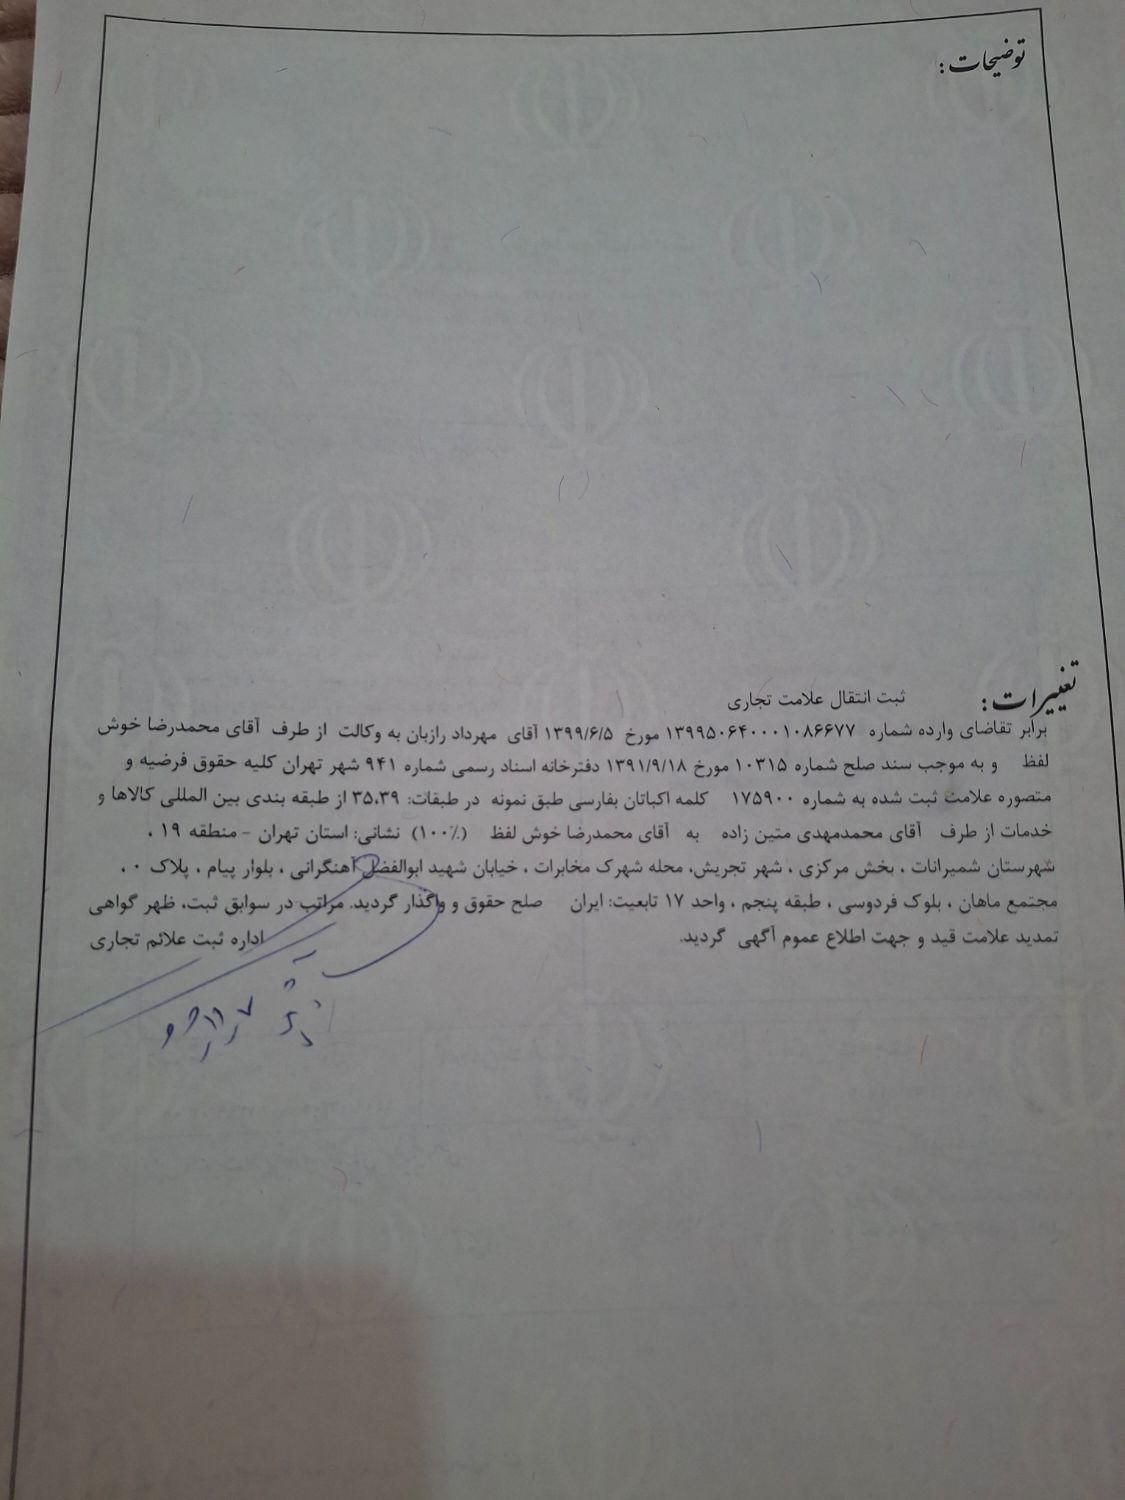 توضیحات:
تغییرات:
ثبت انتقال علامت تجاری
برابر تقاضای وارده شماره ۱۳۹۹۵۰۶۴۰۰۰۱۰۸۶۶۷۷ مورخ ۱۳۹۹/۶/۵ آقای مهرداد رازبان به وکالت از طرف آقای محمدرضا خوش
لفظ و به موجب سند صلح شماره ۱۰۳۱۵ مورخ ۱۳۹۱/۹/۱۸ دفترخانه اسناد رسمی شماره ۹۴۱ شهر تهران کلیه حقوق فرضیه و
متصوره علامت ثبت شده به شماره ۱۷۵۹۰۰ کلمه اکباتان بفارسی طبق نمونه در طبقات: ۳۵،۳۹ از طبقه بندی بین المللی کالاها و
خدمات از طرف آقای محمدمهدی متین زاده به آقای محمدرضا خوش لفظ (۱۰۰٪) نشانی: استان تهران - منطقه ۱۹ ،
شهرستان شمیرانات ، بخش مرکزی ، شهر تجریش، محله شهرک مخابرات ، خیابان شهید ابوالفضل آهنگرانی ، بلوار پیام ، پلاک ۰ ،
مجتمع ماهان ، بلوک فردوسی ، طبقه پنجم ، واحد ۱۷ تابعیت: ایران صلح حقوق و واگذار گردید. مراتب در سوابق ثبت، ظهر گواهی
تمدید علامت قید و جهت اطلاع عموم آگهی گردید.
اداره ثبت علائم تجاری